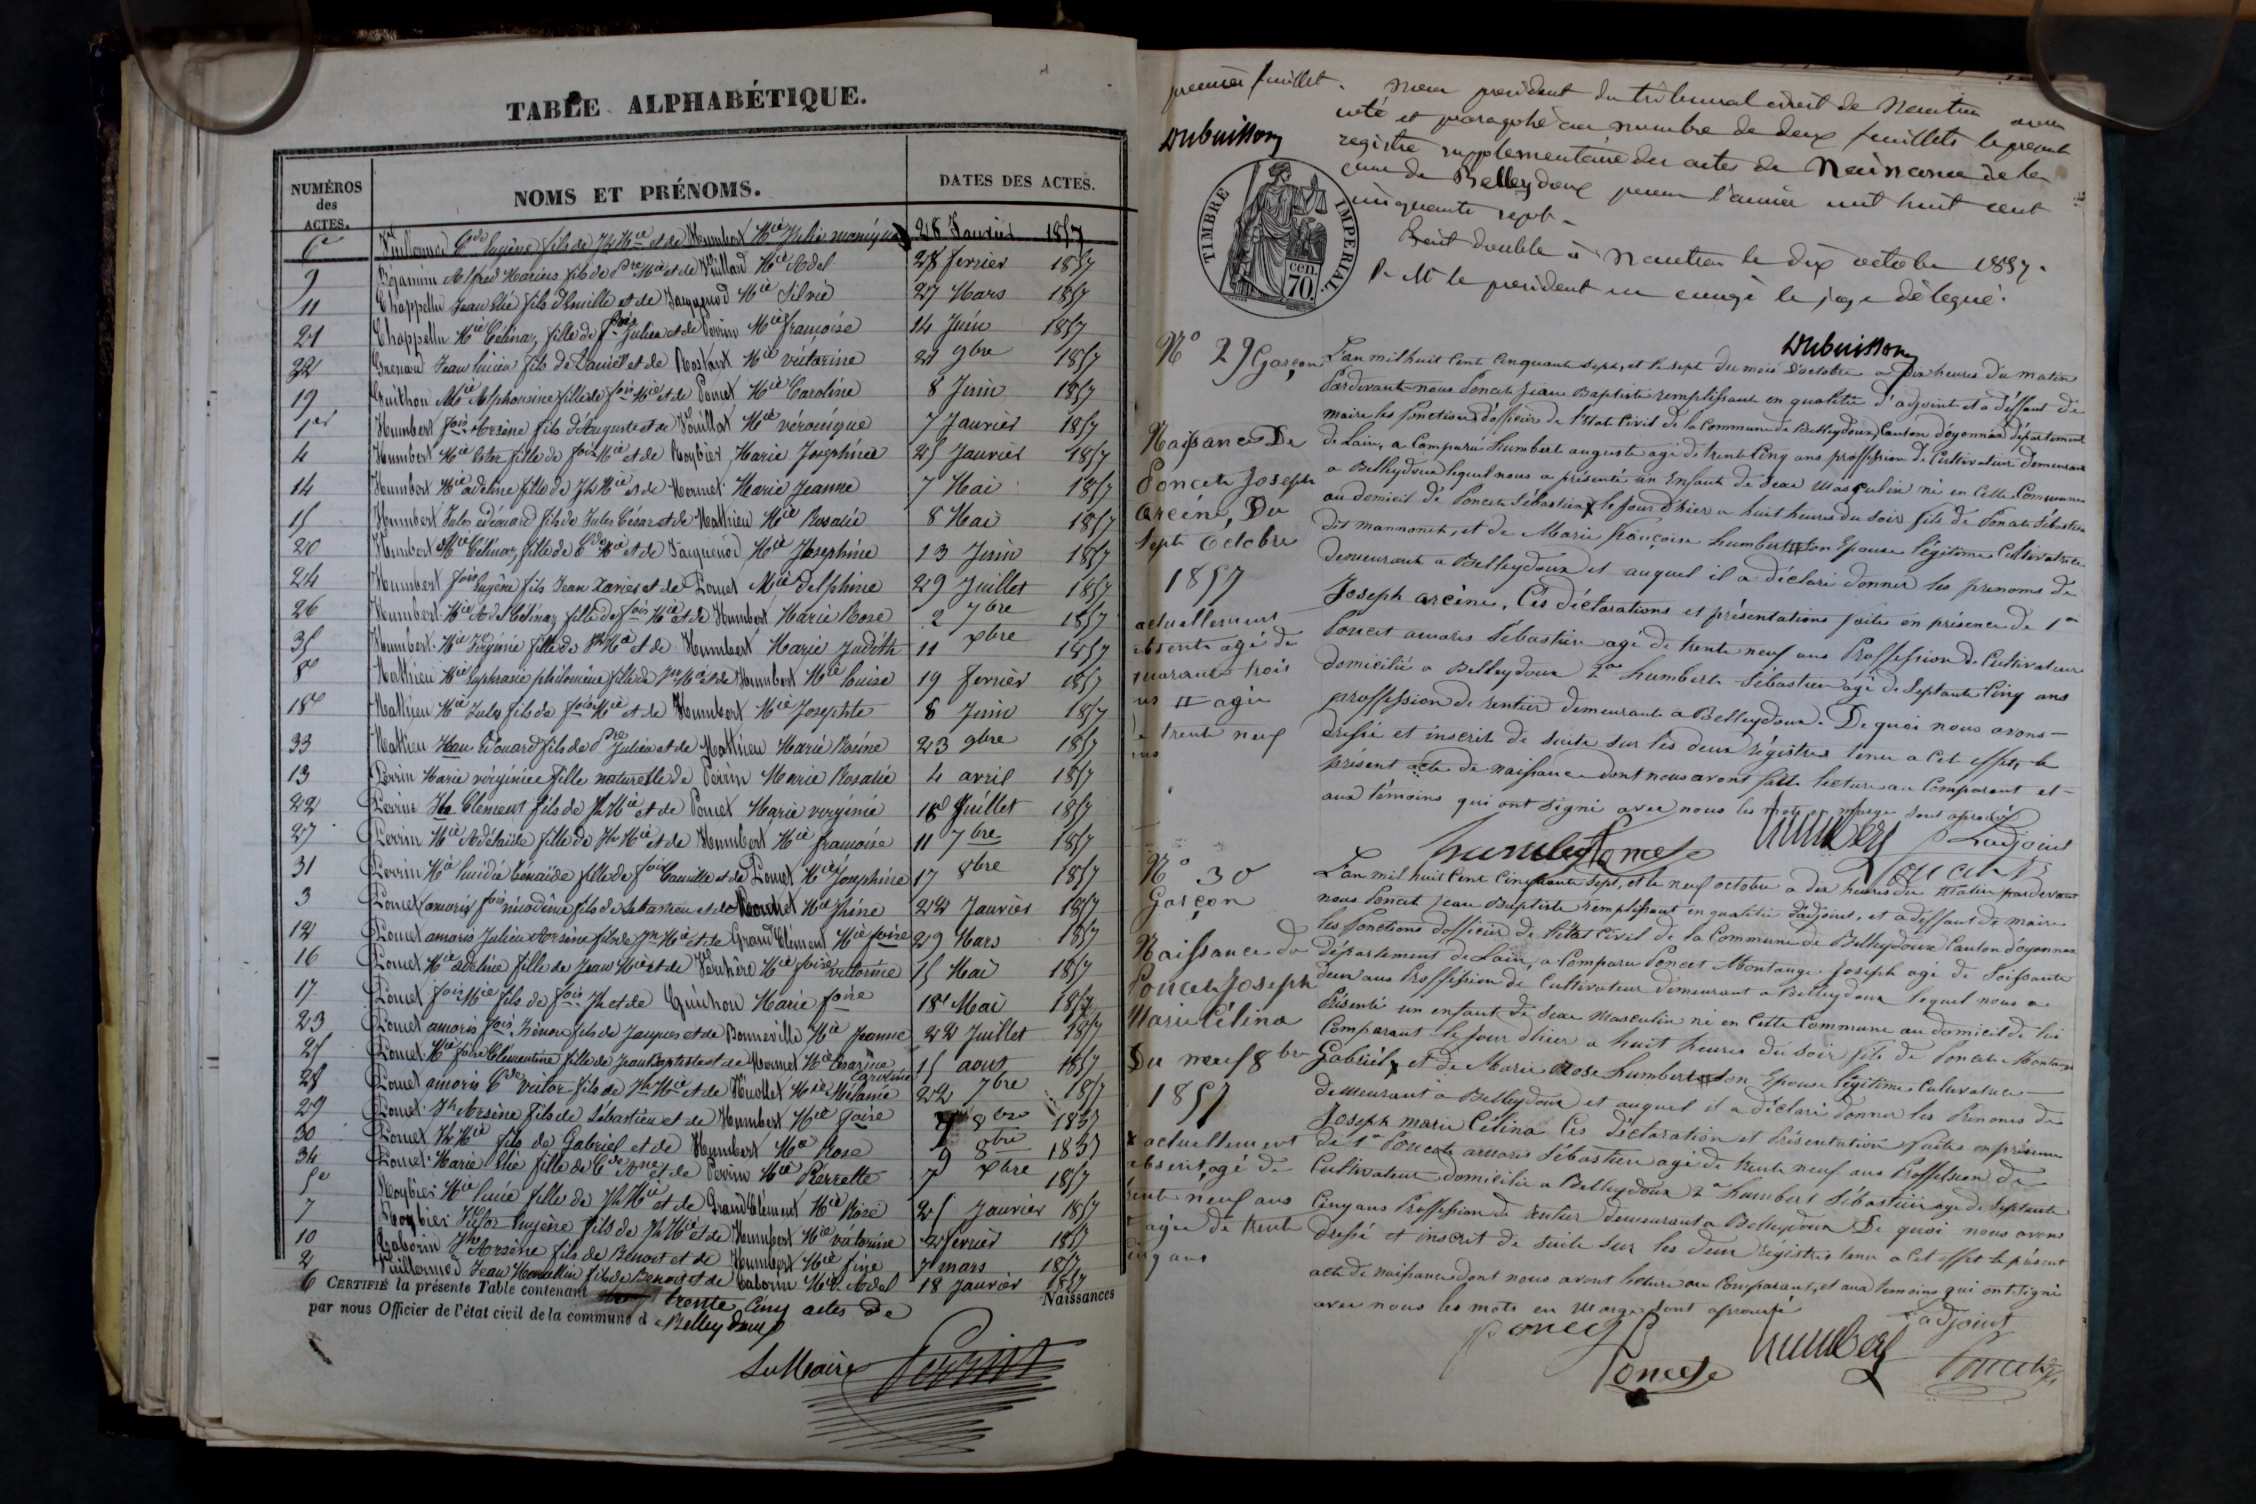 TABLE ALPHABÉTIQUE.
NUMÉROS des ACTES.
NOMS ET PRÉNOMS.
DATES DES ACTES.
Eugène fils de Jh Mie et de Humbert Mie Julie 28 Janvier 1857
9 Alfred Marius fils de Pre Mie et de Vuillard Mie Adel 28 fevrier 1857
11 Chappellu Jean Elie fils d'Emille et de Jacquenod Mie Silvie 27 Mars 1857
21 Chappellu Mie Celina, fille de fois Julien et de Perrin Mie françoise 14 Juin 1857
32 Grenard Jean lucien fils de Daniel et de Mie victorine 21 9bre 1857
19 Guichon Mie Alphonsine fille de fois Mie et de Poncet Mie Caroline 8 Juin 1857
1er Humbert fois Arsène fils d'Auguste et de Mie véronique 7 Janvier 1857
4 Humbert Mie Ester fille de fois Mie et de Roybier Marie Joséphine 25 Janvier 1857
14 Humbert Mie adeline fille de Jh Mie et de Mermet Marie Jeanne 7 Mai 1857
15 Humbert Jules edouard fils de Jules César et de Mathieu Mie Rosalie 8 Mai 1857
20 Humbert Mie Célina, fille de Cde Mie et de Jacquenod Mie Josephine 13 Juin 1857
24 Humbert fois Eugène fils Jean Xavier et de Poncet Mie Delphine 29 Juillet 1857
26 Humbert Mie Adel Célina, fille de fois Mie et de Humbert Marie Rose 2 7bre 1857
35 Humbert Mie Virginie fille de Jh Mie et de Humbert Marie Judith 11 Xbre 1857
8e Mathieu Mie Euphrasie philomène fille de Jn Mie et de Humbert Mie louise 19 fevrier 1857
18e Mathieu Mie Jules fils de fois Mie et de Humbert Mie Josephte 6 Juin 1857
33 Mathieu Jean Edouard fils de Pre Julien et de Mathieu Marie Rosine 23 9bre 1857
13 Perrin Marie virginie fille naturelle de Perrin Marie Rosalie 4 avril 1857
22 Perrin Jh Clément fils de Jh Mie et de Poncet Marie virginie 18 Juillet 1857
27 Perrin Mie Adélaïde fille de Jh Mie et de Humbert Mie françoise 11 7bre 1857
31 Perrin Mie fille de fois Camille et de Poncet Mie Joséphine 17 8bre 1857
3 Poncet amoris fois nicodème fils de Sébastien et de Mie 22 Janvier 1857
12 Poncet amoris Julien Arsène fils de Jn Mie et de Grand Clément Mie foise 29 Mars 1857
16 Poncet Mie adeline fille de Jean Mie et de Mie foise victorine 15 Mai 1857
17 Poncet fois Mie fils de fois Jh et de Guichon Marie foise 18 Mai 1857
23 Poncet amoris fois fils de Jacques et de Bonneville Mie Jeanne 22 Juillet 1857
25 Poncet Mie foise Clémentine fille de Jean Baptiste et de Mermet Mie Césarine Caroline 15 aout 1857
28 Poncet amoris Cde victor fils de Jh Mie et de Mie Mélanie 22 7bre 1857
29 Poncet Jh Arsène fils de Sébastien et de Humbert Mie foise 7 8bre 1857
30 Poncet Jh Mie fils de Gabriel et de Humbert Mie Rose 9 8bre 1857
34 Poncet Marie Elie fille de et de Perrin Mie Pierrette 7 Xbre 1857
5e Roybier Mie lucie fille de Jh Mie et de Grand Clément Mie Rose 25 Janvier 1857
7 Roybier Victor Eugène fils de Jh Mie et de Humbert Mie victorine 2 fevrier 1857
10 Jh Arsène fils de Benoit et de Humbert Mie fine 7 mars 1857
2 Vuillermoz Jean Marcellin fils de Benoit et de Mie Adel 18 Janvier 1857
CERTIFIÉ la présente Table contenant trente Cinq actes de Naissances
par nous Officier de l'état civil de la commune d e Belleydoux
Le Maire Perrin
premier feuillet.
Dubuisson
TIMBRE IMPERIAL
70 cen.
Nous president du tribunal civil de Nantua avons
coté et paraphé au nombre de deux feuillets le present
registre supplementaire des actes de Naissance de la
cune de Belleydoux pour l'année mil huit cent
cinquante sept.
Fait double à Nantua le dix octobre 1857.
Pr Mr le president en congé le juge délégué.
Dubuisson
No 29 Garçon
Naissance De
Poncet Joseph
arcène, Du
Sept Octobre
1857
actuellement
absent agé de
quarante trois
ans # agée
de trente neuf
ans
L'an mil huit Cent Cinquante Sept, et le sept du mois d'octobre a dix heures du matin
Pardevant nous Poncet Jean Baptiste remplissant en qualité d'adjoint et a deffaut de
maire les fonctions d'officier de l'état Civil de la Commune de Belleydoux, Canton d'oyonnax département
de Lain, a Comparu Humbert auguste agé de trente Cinq ans proffession de Cultivateur demeurant
a Belleydoux lequel nous a présenté un Enfant de Sexe Masculin né en Cette Commune
au domicil de Poncet Sébastien x le jour d'hier a huit heures du soir fils de Poncet Sébastien
dit mannonet, et de Marie françoise humbert # son Epouse légitime Cultivatrice
demeurant a Belleydoux et auquel il a déclaré donner les prenoms de
Joseph arcène. Ces déclarations et présentations faites en présence de 1er
Poncet amoris Sébastien agé de trente neuf ans Proffession de Cultivateur
domicilié a Belleydoux 2me humbert Sébastien agé de Septante Cinq ans
proffession de rentier demeurant a Belleydoux. De quoi nous avons
dressé et inscrit de suite sur les deux régistres tenu a Cet effet le
présent acte de naissance dont nous avont fait lecture au Comparant et
aux témoins qui ont signé avec nous les mots en marge sont aprouvé
humbert Poncet humbert L'adjoint
Poncet
No 30
Garçon
Naissance de
Poncet Joseph
Marie Célina
Du neuf 8bre
1857
x actuellement
absent, agé de
trente neuf ans
# agée de trente
cinq ans
L'an mil huit Cent Cinquante Sept, et le neuf octobre a dix heures du Matin pardevant
nous Poncet Jean Baptiste remplissant en qualité d'adjoint, et a deffaut de maire
les fonctions d'officier de l'état Civil de la Commune de Belleydoux Canton d'oyonnax
département de Lain, a Comparu Poncet Montange Joseph agé de Soissante
deux ans Proffession de Cultivateur demeurant a Belleydoux lequel nous a
Présenté un enfant de Sexe Masculin né en Cette Commune au domicil de lui
Comparant le jour d'hier a huit heures du soir fils de Poncet Montange
Gabriel x et de Marie Rose humbert # son Epouse légitime Cultivatrice
demeurant a Belleydoux et auquel il a déclaré donner les Prenoms de
Joseph marie Célina Ces déclaration et Présentation faites en présence
de 1er Poncet amoris Sébastien agé de trente neuf ans Proffession de
Cultivateur domicilié a Belleydoux 2e humbert Sébastien agé de Septante
Cinq ans Proffession de rentier demeurant a Belleydoux De quoi nous avons
dressé et inscrit de suite sur les deux régistres tenu a Cet effet le présent
acte de naissance dont nous avont lecture au Comparant, et aux temoins qui ont signé
avec nous les mots en Marge sont aprouvé
L'adjoint
Poncet Poncet humbert Poncet